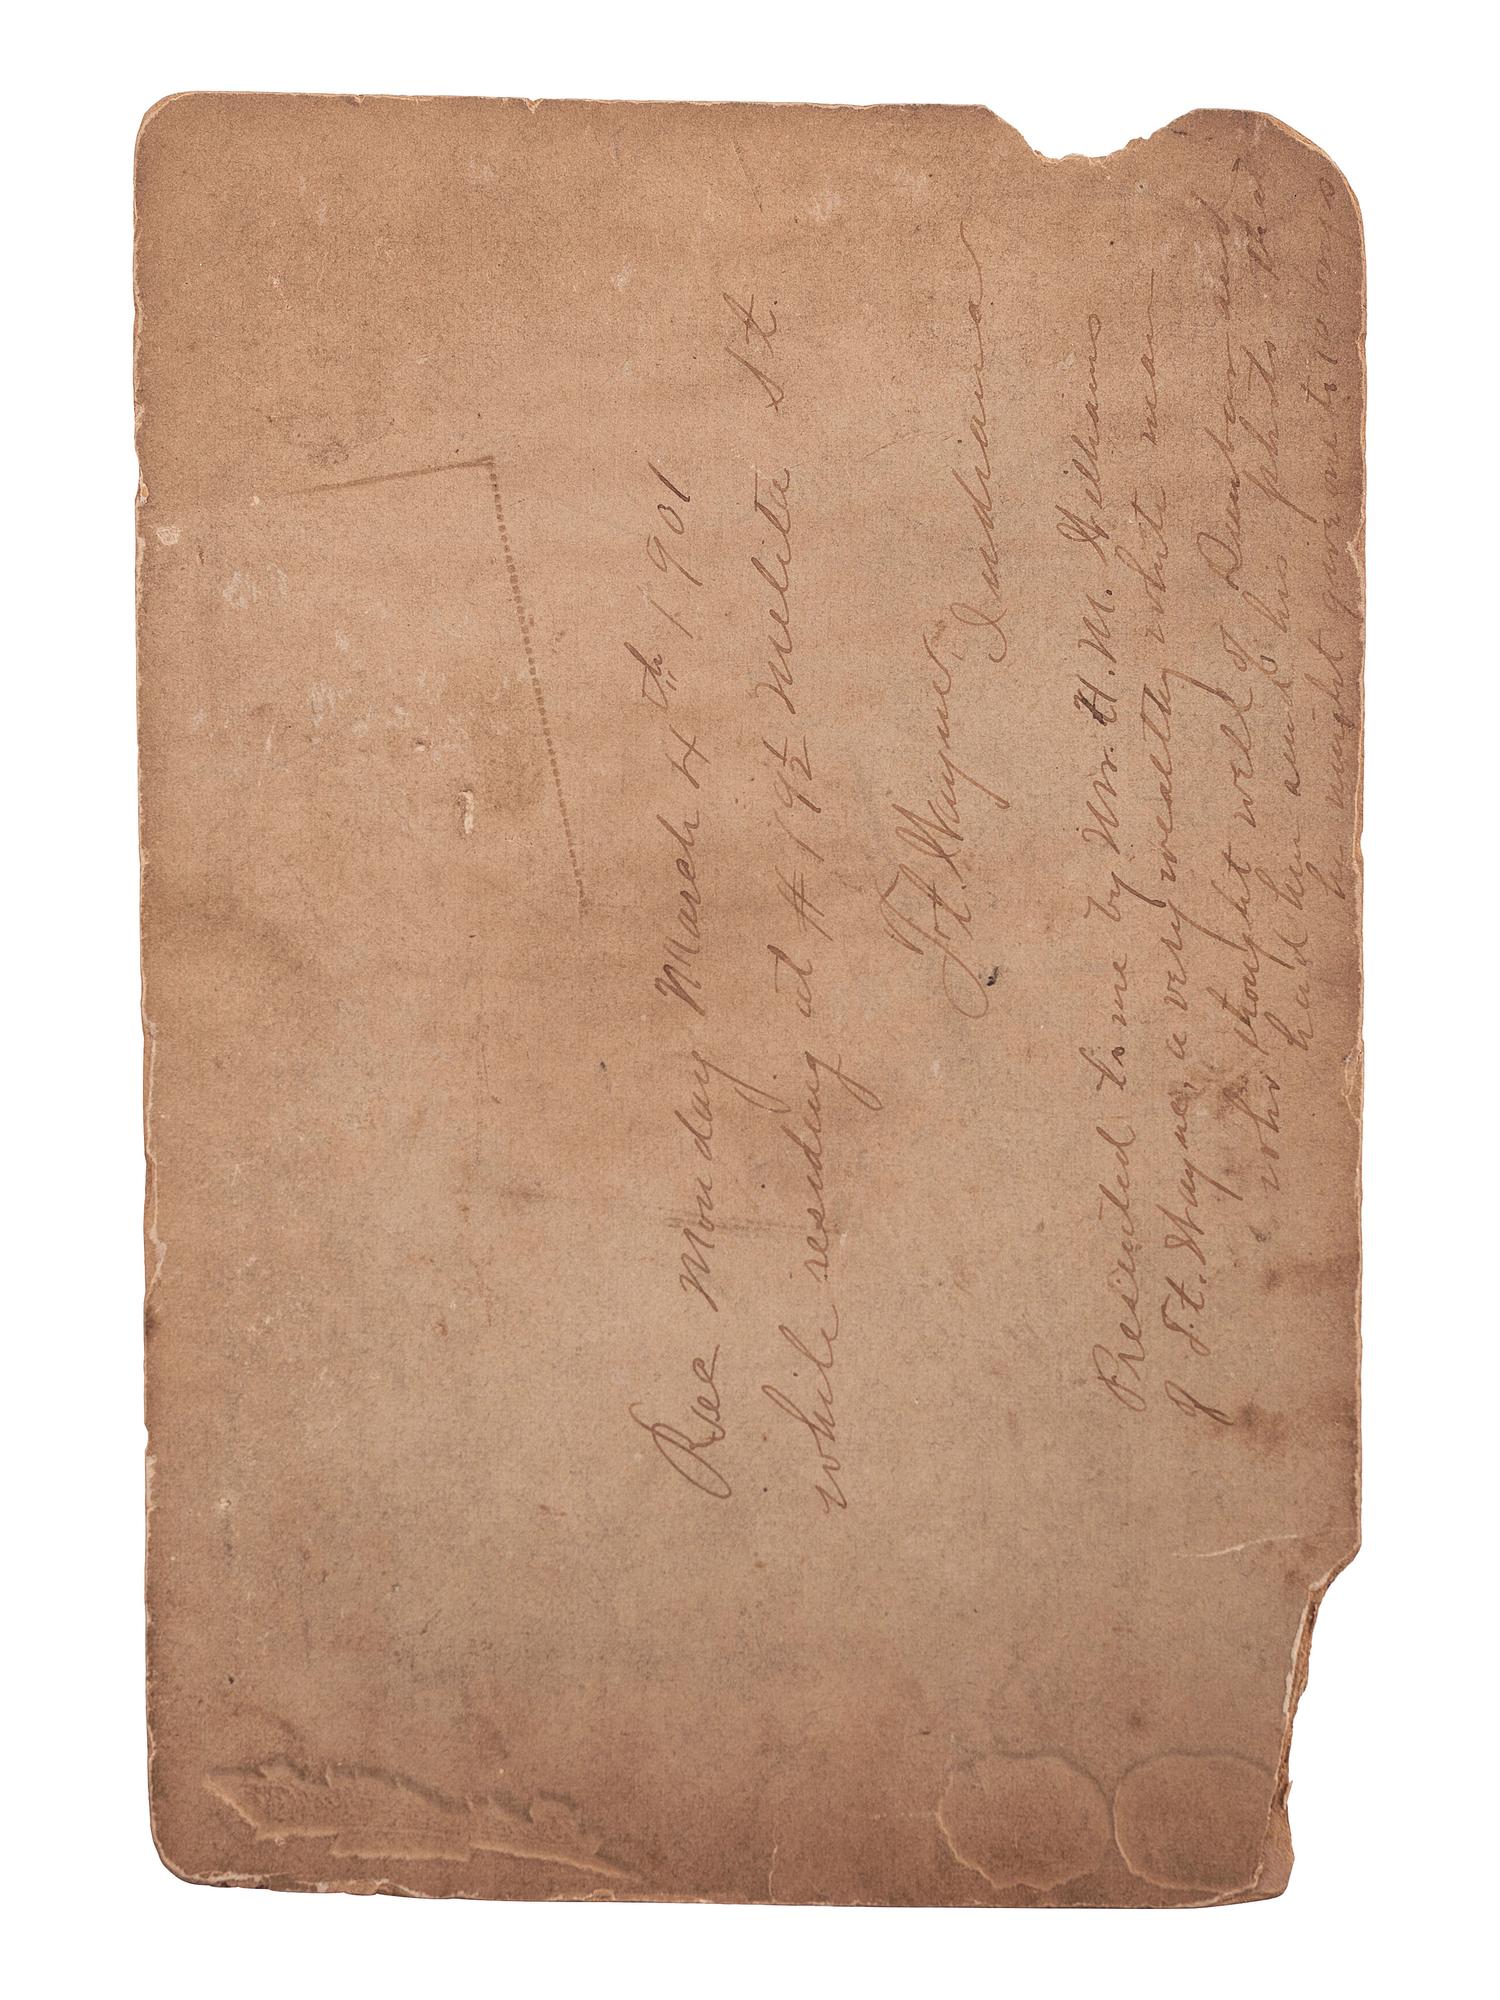 Rec Monday March 4th 1901
while residing at # 19½ Melita St.
Fort Wayne
Indiana
Presented to me by Mr. H. M. Williams
of Ft. Wayne, a very wealthy white man
who thought well of Dunbar and
had him and his photo that
he might give me to